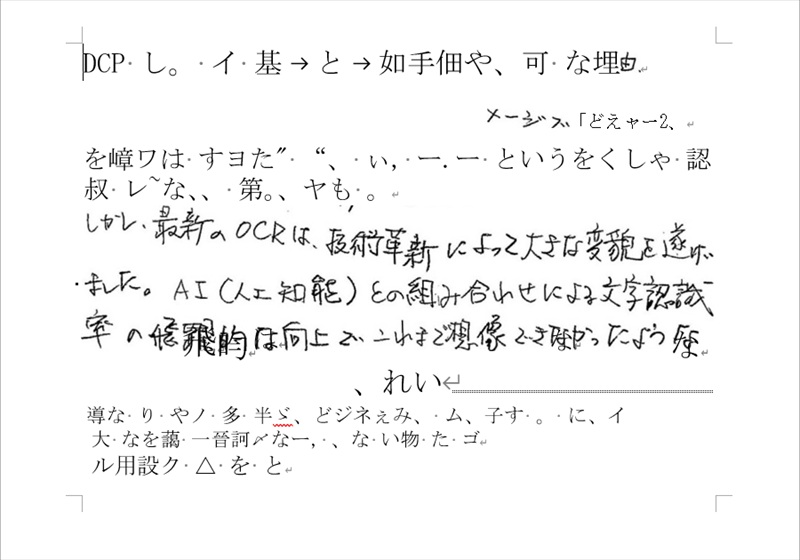 DCP し。 イ 基→と→如手佃や、可 な埋由.
メージズ「どえャー2、
を嶂ワは すヨた″ “、 ぃ, ー.ー というをくしゃ 認
叔 レ~な、、 第。、ヤも 。
しかし、最新のOCRは、技術革新によって大きな変貌を遂げ
ました。AI(人工知能)との組み合わせによる文字認識
率の飛躍的な向上で、これまで想像できなかったような
、れい
導な り やノ 多 半ゞ、どジネぇみ、 ム、子す 。 に、イ
大 なを藹 一晉訶〆なー, 、な い物 た ゴ
ル用設ク △ を と